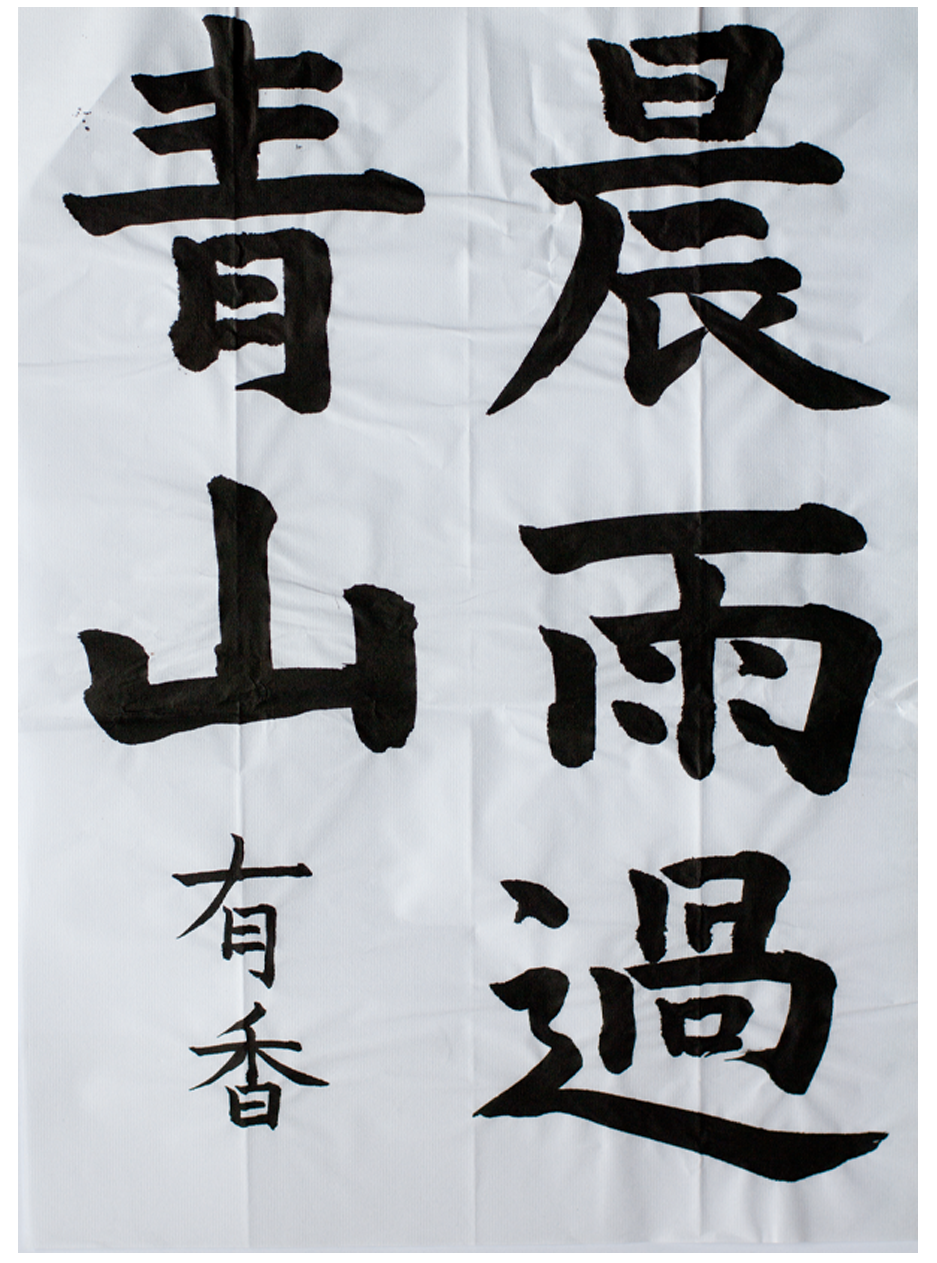 晨雨過
青山
有香